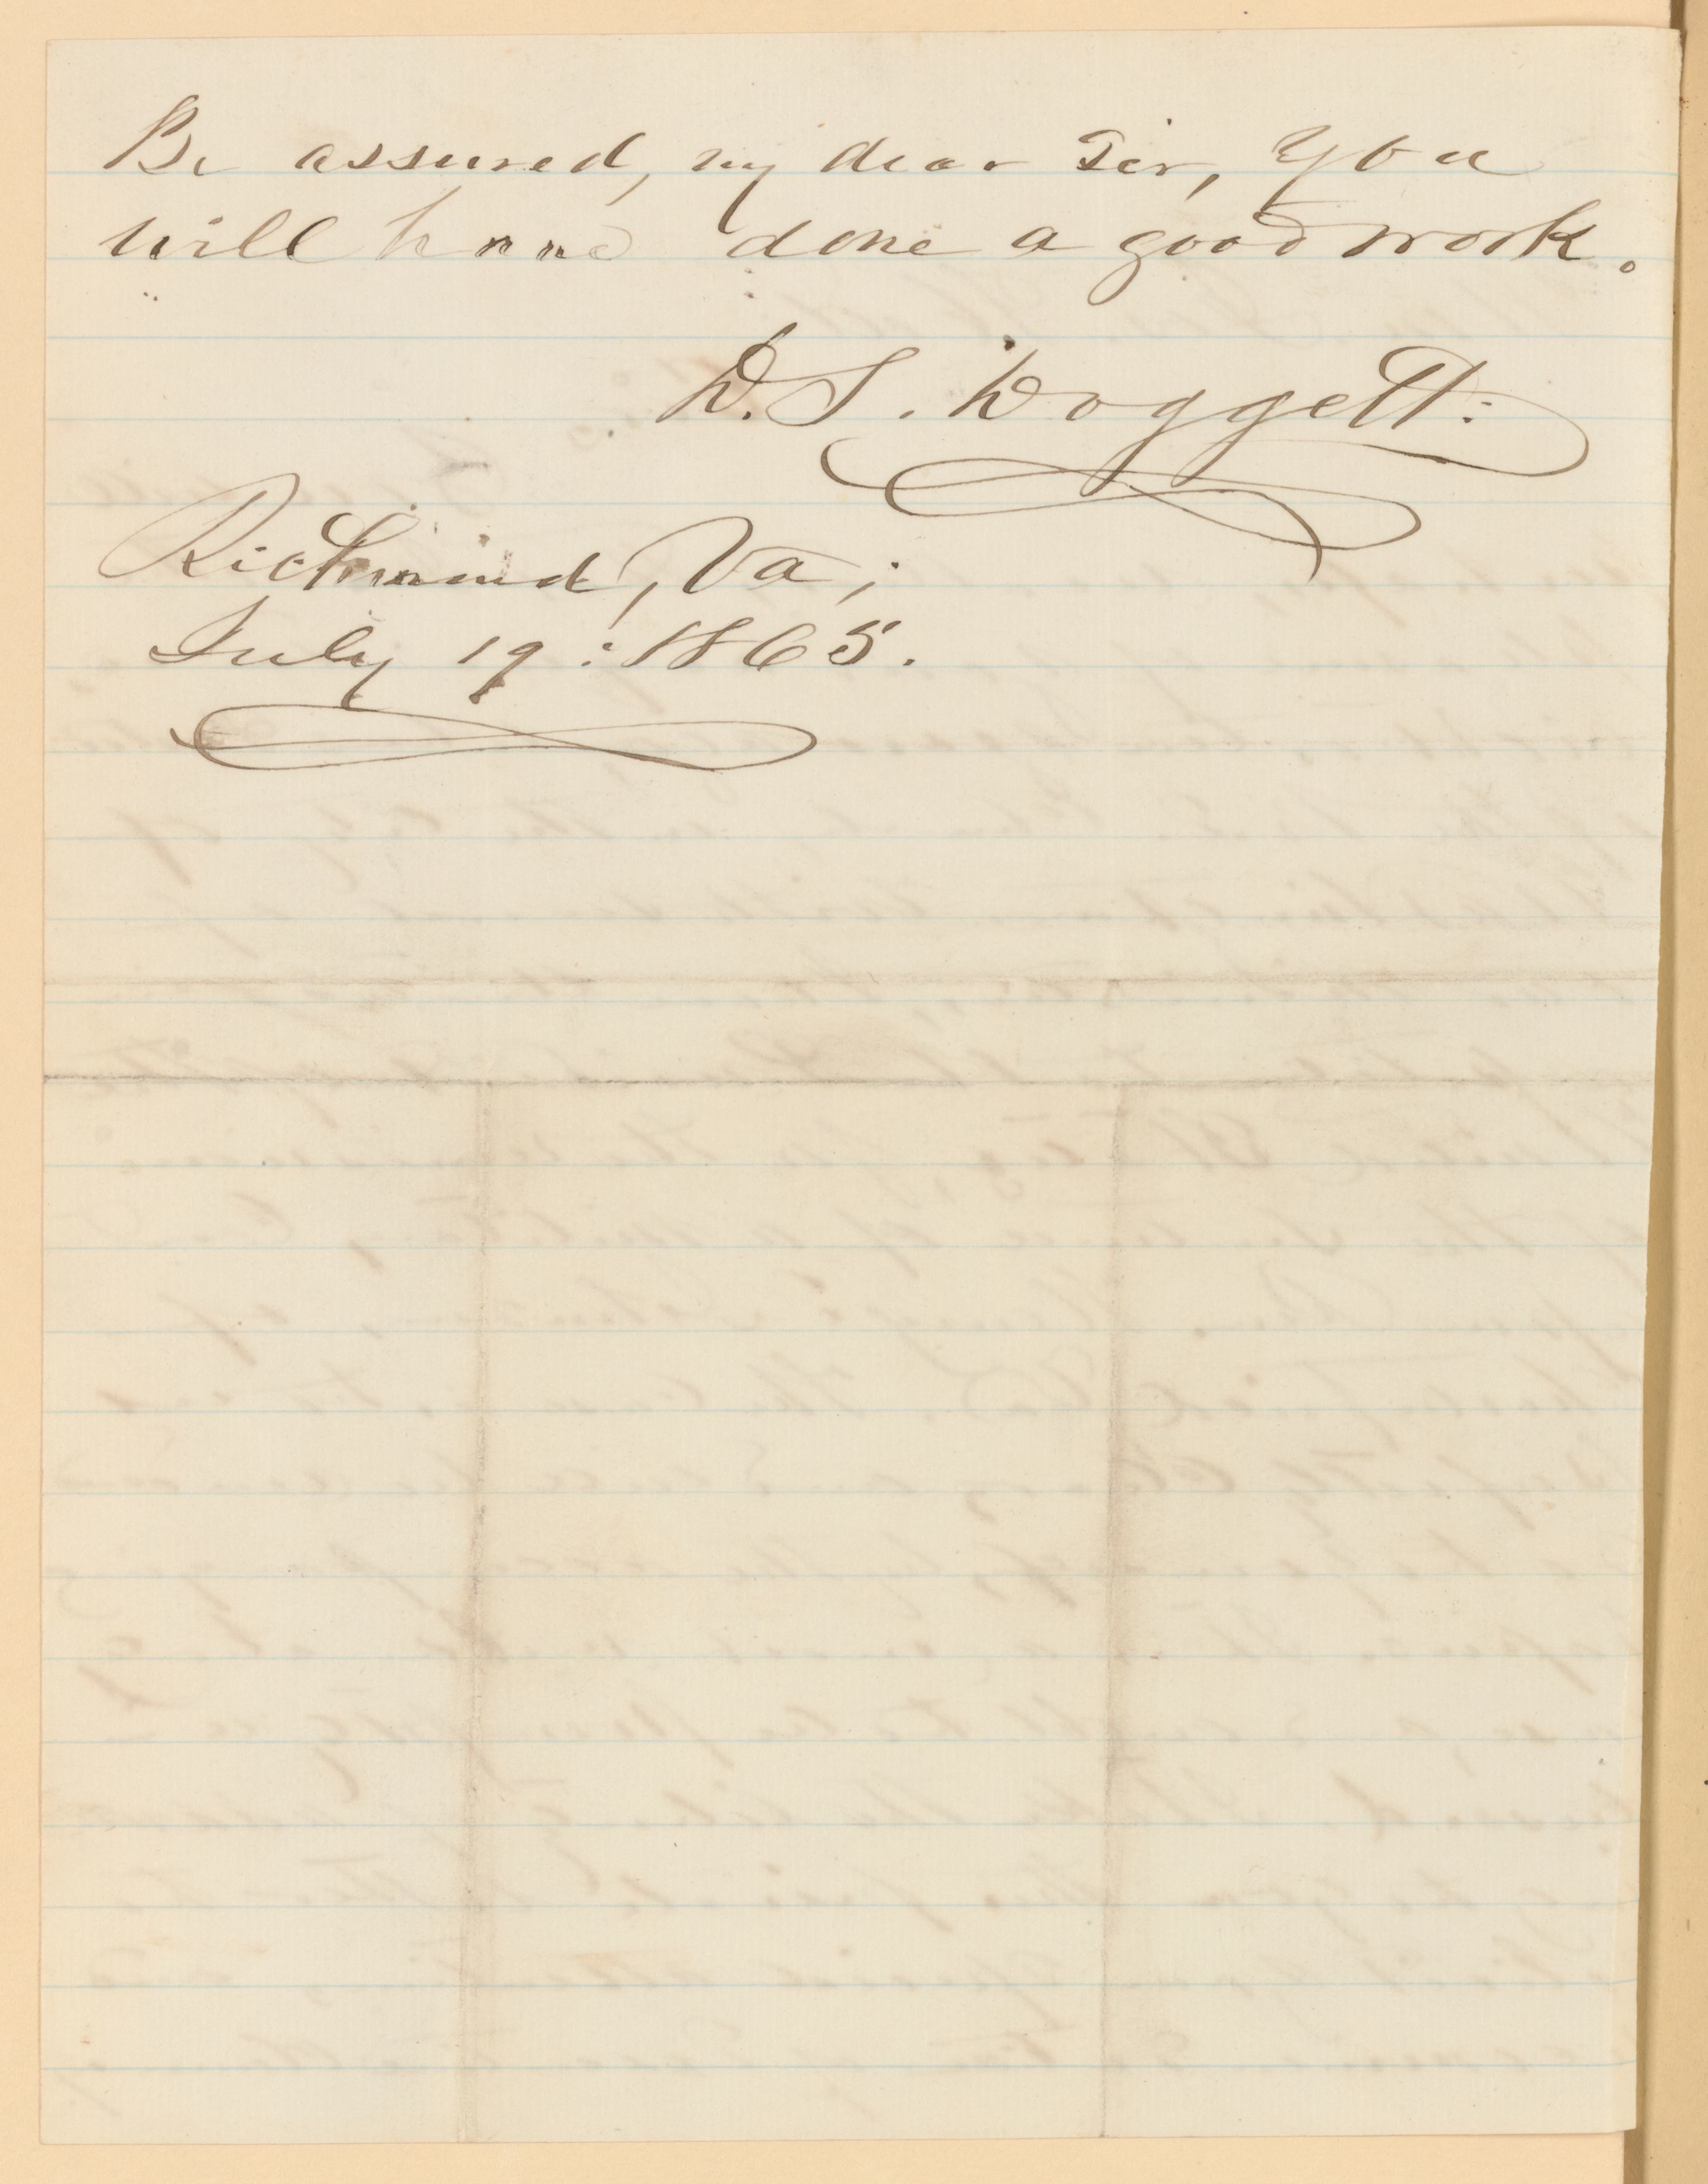 Be assured, my dear Sir, you
will have done a good work.
D. S. Doggett:
Richmond, Va;
July 19: 1865.